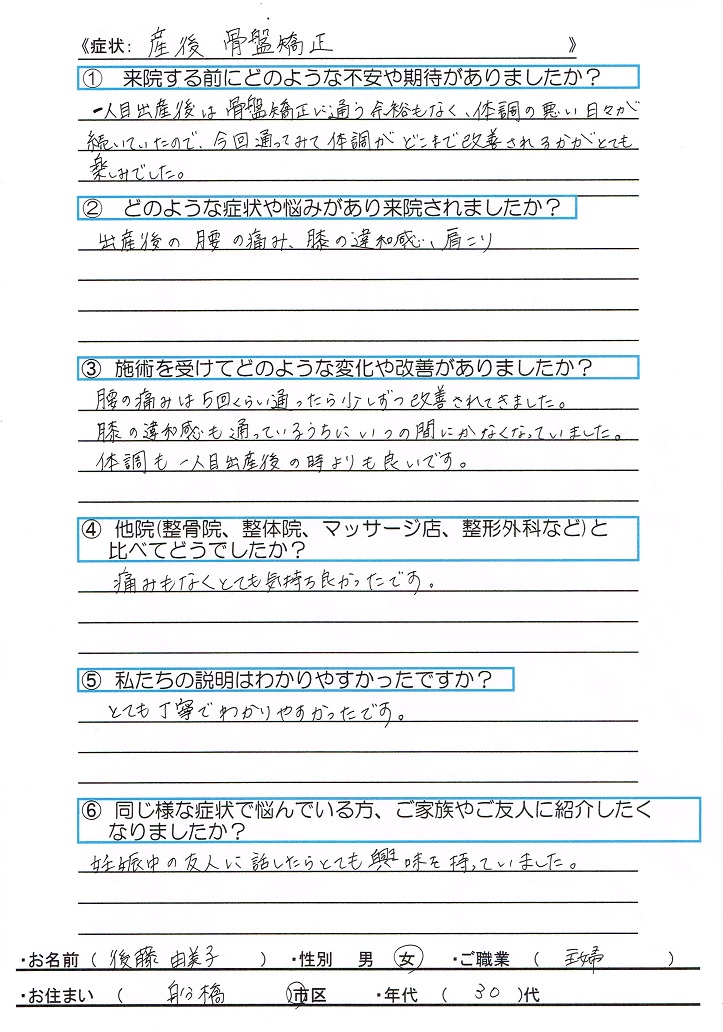 《症状: 産後 骨盤矯正 》
① 来院する前にどのような不安や期待がありましたか？
一人目出産後は骨盤矯正に通う余裕もなく、体調の悪い日々が
続いていたので、今回通ってみて体調がどこまで改善されるかがとても
楽しみでした。
② どのような症状や悩みがあり来院されましたか？
出産後の腰の痛み、膝の違和感、肩こり
③ 施術を受けてどのような変化や改善がありましたか？
腰の痛みは5回くらい通ったら少しずつ改善されてきました。
膝の違和感も通っているうちにいつの間にかなくなっていました。
体調も一人目出産後の時よりも良いです。
④ 他院(整骨院、整体院、マッサージ店、整形外科など)と
比べてどうでしたか？
痛みもなくとても気持ち良かったです。
⑤ 私たちの説明はわかりやすかったですか？
とても丁寧でわかりやすかったです。
⑥ 同じ様な症状で悩んでいる方、ご家族やご友人に紹介したく
なりましたか？
妊娠中の友人に話したらとても興味を持っていました。
・お名前 ( 後藤 由美子 ) ・性別 男 女 ・ご職業 ( 主婦 )
・お住まい ( 船橋 市区 ・年代 ( 30 )代